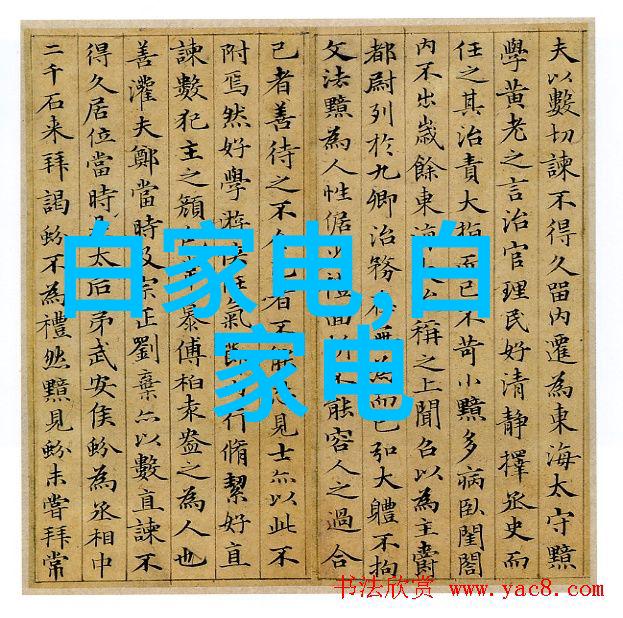 夫以數切諫不得久留內遷為東海太守黯
學黃老之言治官理民好清静擇丞史而
任之其治責大指而已不苛小黯多病臥閨閤
內不出歲餘東稱之上聞召以為主爵
都尉列於九卿治務為而已弘大體不拘
文法黯為人性倨少禮面折不能容人之過合
己者善待之不合己者不能見士亦以此不
附焉然好學游俠任氣節行脩絜好直
諫數犯主之顏暴傅柏袁盎之為人也
善灌夫鄭當時及宗正劉棄亦以數直諫不
得久居位當時太后弟武安侯蚡為丞相中
二千石来拜謁蚡不為禮然黯見蚡未嘗拜常
白家电,白
家电
书法欣赏 www.yac8.com